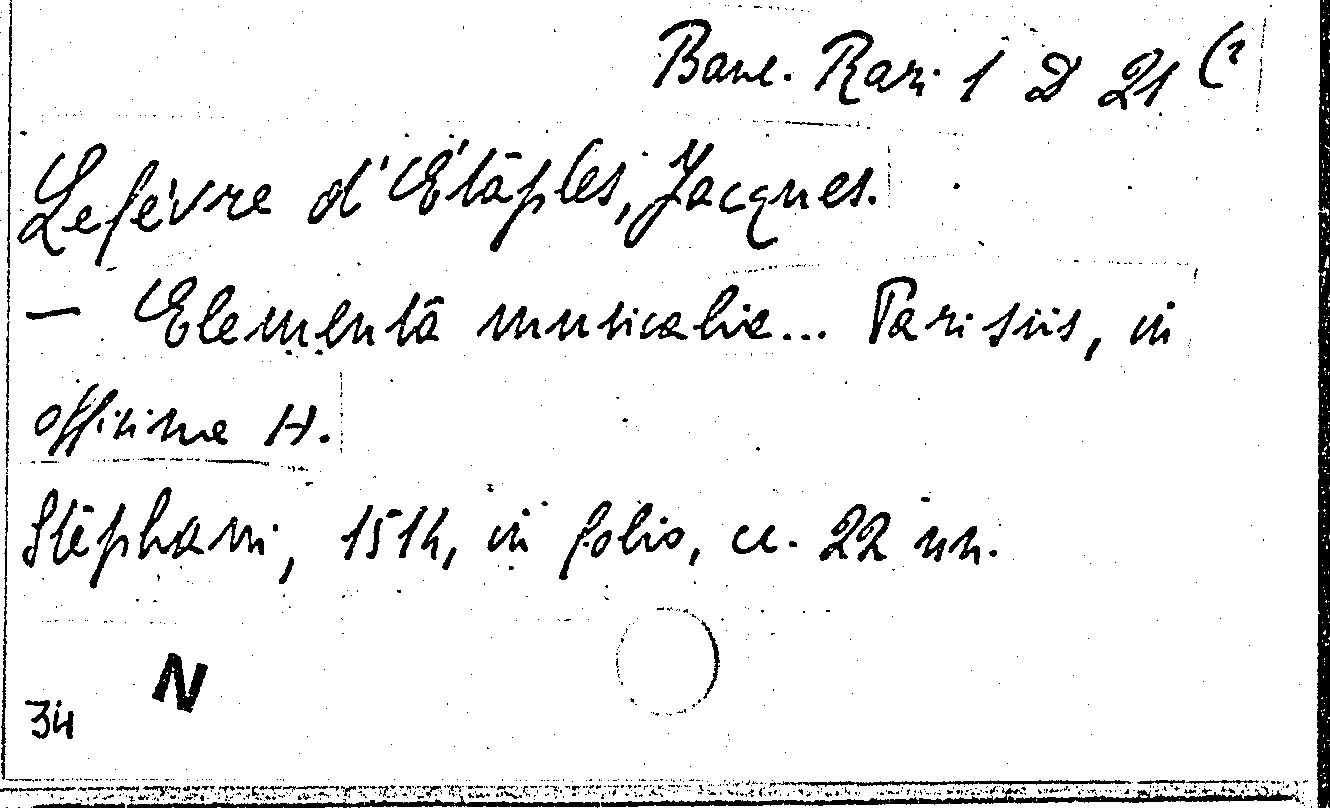 Banc. Rari 1 D 21 (2
Lefèvre d'Étaples, Jacques.
— Elementa musicalia... Parisiis, in
officina H.
Stephani, 1514, in folio, cc. 22 nn.
N
34